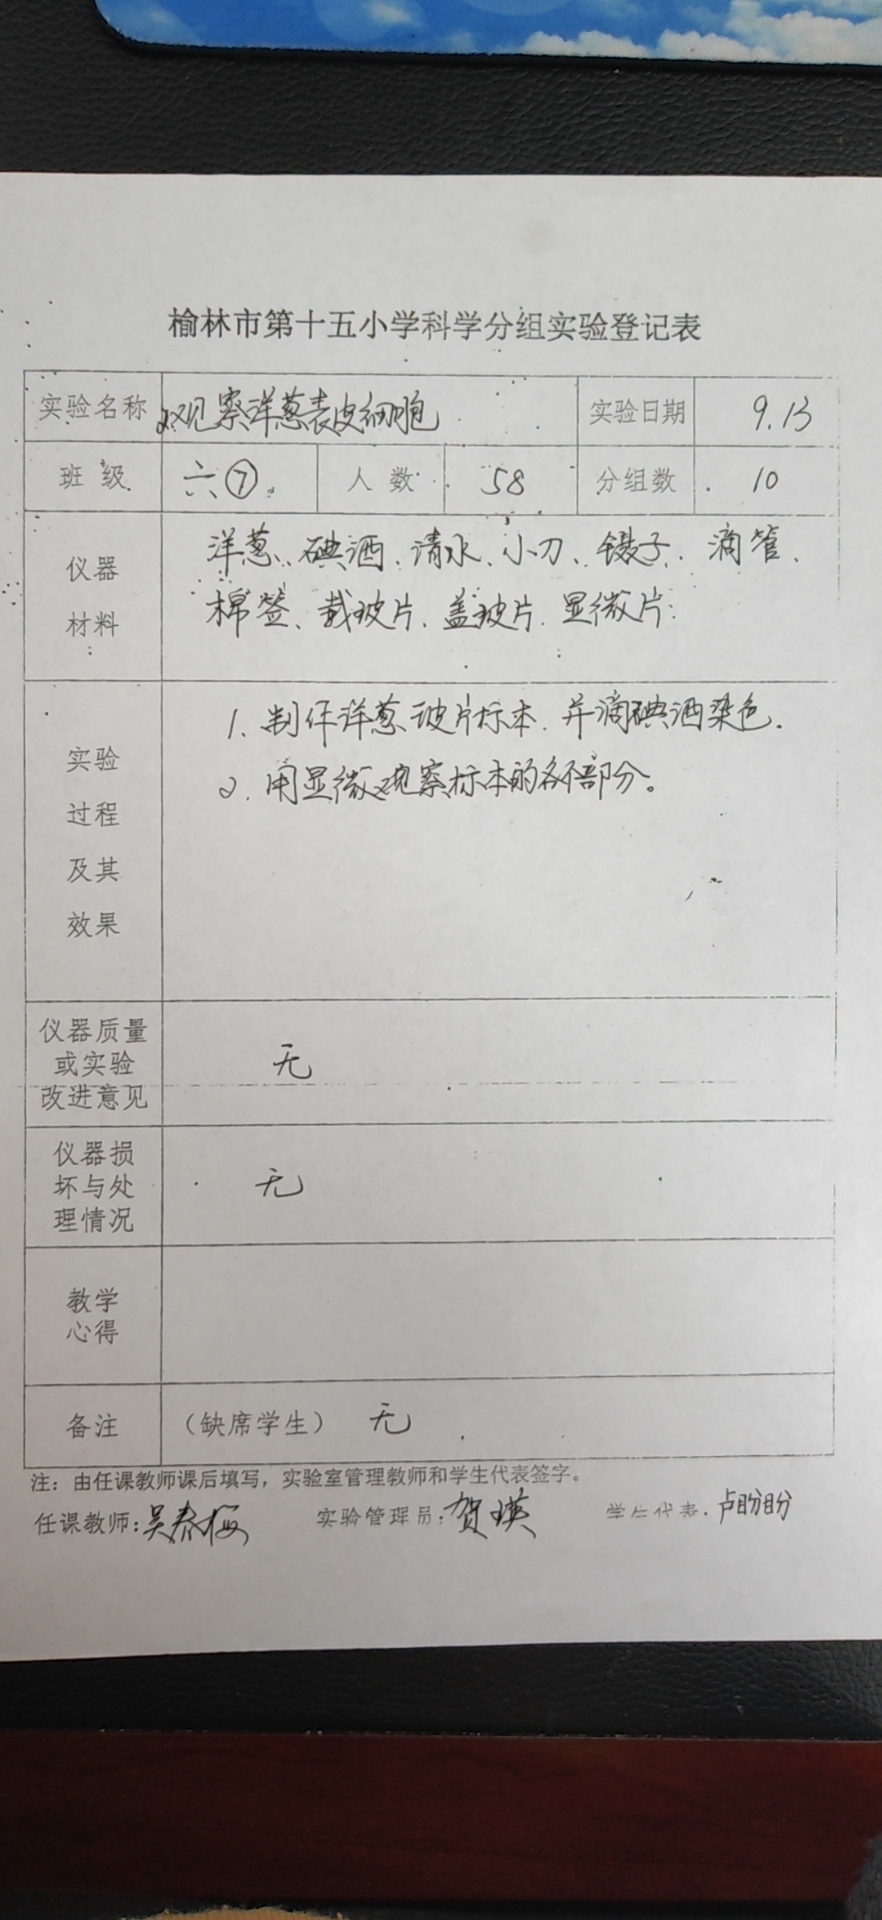 榆林市第十五小学科学分组实验登记表
实验名称 观察洋葱表皮细胞 实验日期 9.13
班级 六⑦ 人数 58 分组数 10
仪器
材料
洋葱、碘酒、清水、小刀、镊子、滴管、
棉签、载玻片、盖玻片、显微片
实验
过程
及其
效果
1. 制作洋葱玻片标本,并滴碘酒染色.
2. 用显微观察标本的各个部分。
仪器质量
或实验
改进意见
无
仪器损
坏与处
理情况
无
教学
心得
备注 (缺席学生) 无
注:由任课教师课后填写,实验室管理教师和学生代表签字。
任课教师:吴春梅 实验管理员:贺瑛 学生代表:卢盼盼